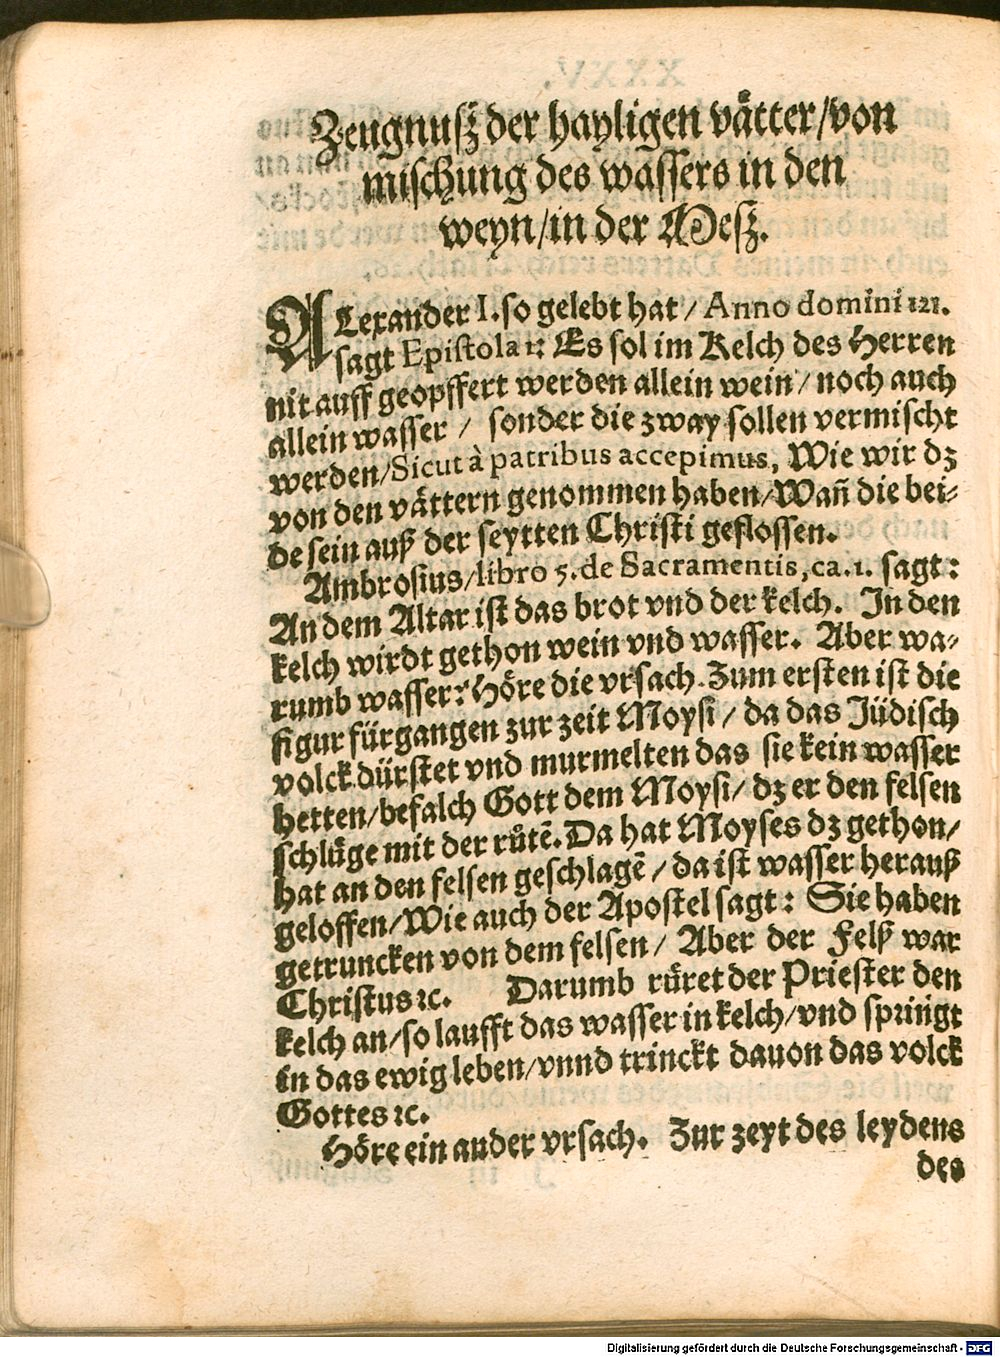 Zeugnusz der hayligen vätter/von
mischung des wassers in den
weyn/in der Mesz.
ALexander I. so gelebt hat / Anno domini 121.
sagt Epistola 1: Es sol im Kelch des Herren
nit auff geopffert werden allein wein / noch auch
allein wasser / sonder die zway sollen vermischt
werden/Sicut à patribus accepimus, Wie wir dz
von den vättern genommen haben/Wañ die bei⸗
de sein auß der seytten Christi geflossen.
Ambrosius/libro 5. de Sacramentis, ca. 1. sagt:
An dem Altar ist das brot vnd der kelch. In den
kelch wirdt gethon wein vnd wasser. Aber wa⸗
rumb wasser? Höre die vrsach. Zum ersten ist die
figur fürgangen zur zeit Moysi / da das Jüdisch
volck dürstet vnd murmelten das sie kein wasser
hetten/befalch Gott dem Moysi/ dz er den felsen
schlüge mit der růtē. Da hat Moyses dz gethon/
hat an den felsen geschlagē / da ist wasser herauß
geloffen/Wie auch der Apostel sagt: Sie haben
getruncken von dem felsen/ Aber der Felß war
Christus ꝛc. Darumb rüret der Priester den
kelch an/so laufft das wasser in kelch/vnd springt
in das ewig leben/vnnd trinckt dauon das volck
Gottes ꝛc.
Höre ein ander vrsach. Zur zeyt des leydens
des
Digitalisierung gefördert durch die Deutsche Forschungsgemeinschaft - DFG